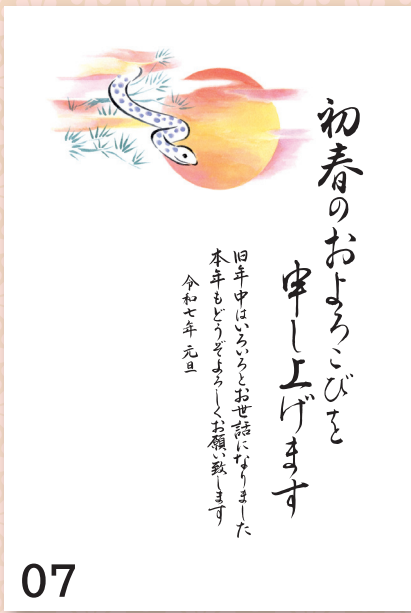 初春のおよろこびを
申し上げます
旧年中はいろいろとお世話になりました
本年もどうぞよろしくお願い致します
令和七年 元旦
07